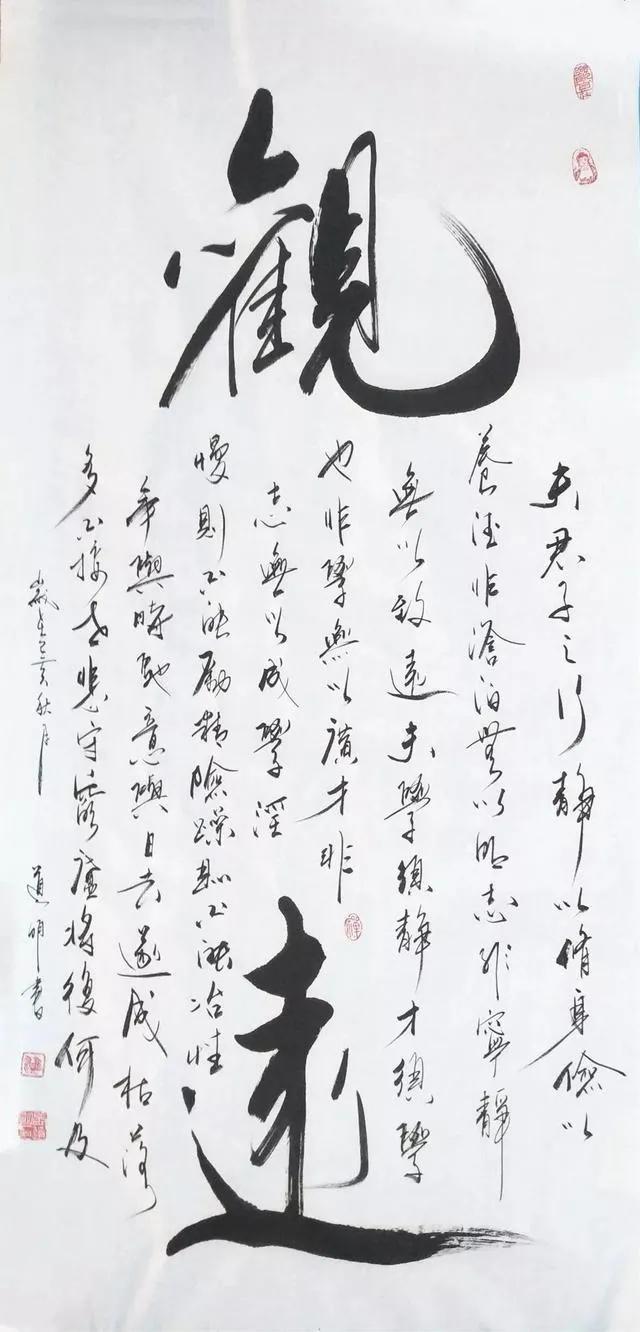 觀遠
夫君子之行靜以脩身儉以
養德非澹泊無以明志非寧靜
無以致遠夫學須靜才須學
也非學無以廣才非
志無以成學淫
慢則不能勵精險躁則不能冶性
年與時馳意與日去遂成枯落
多不接世悲守窮廬將復何及
歲在己亥秋月 道明書